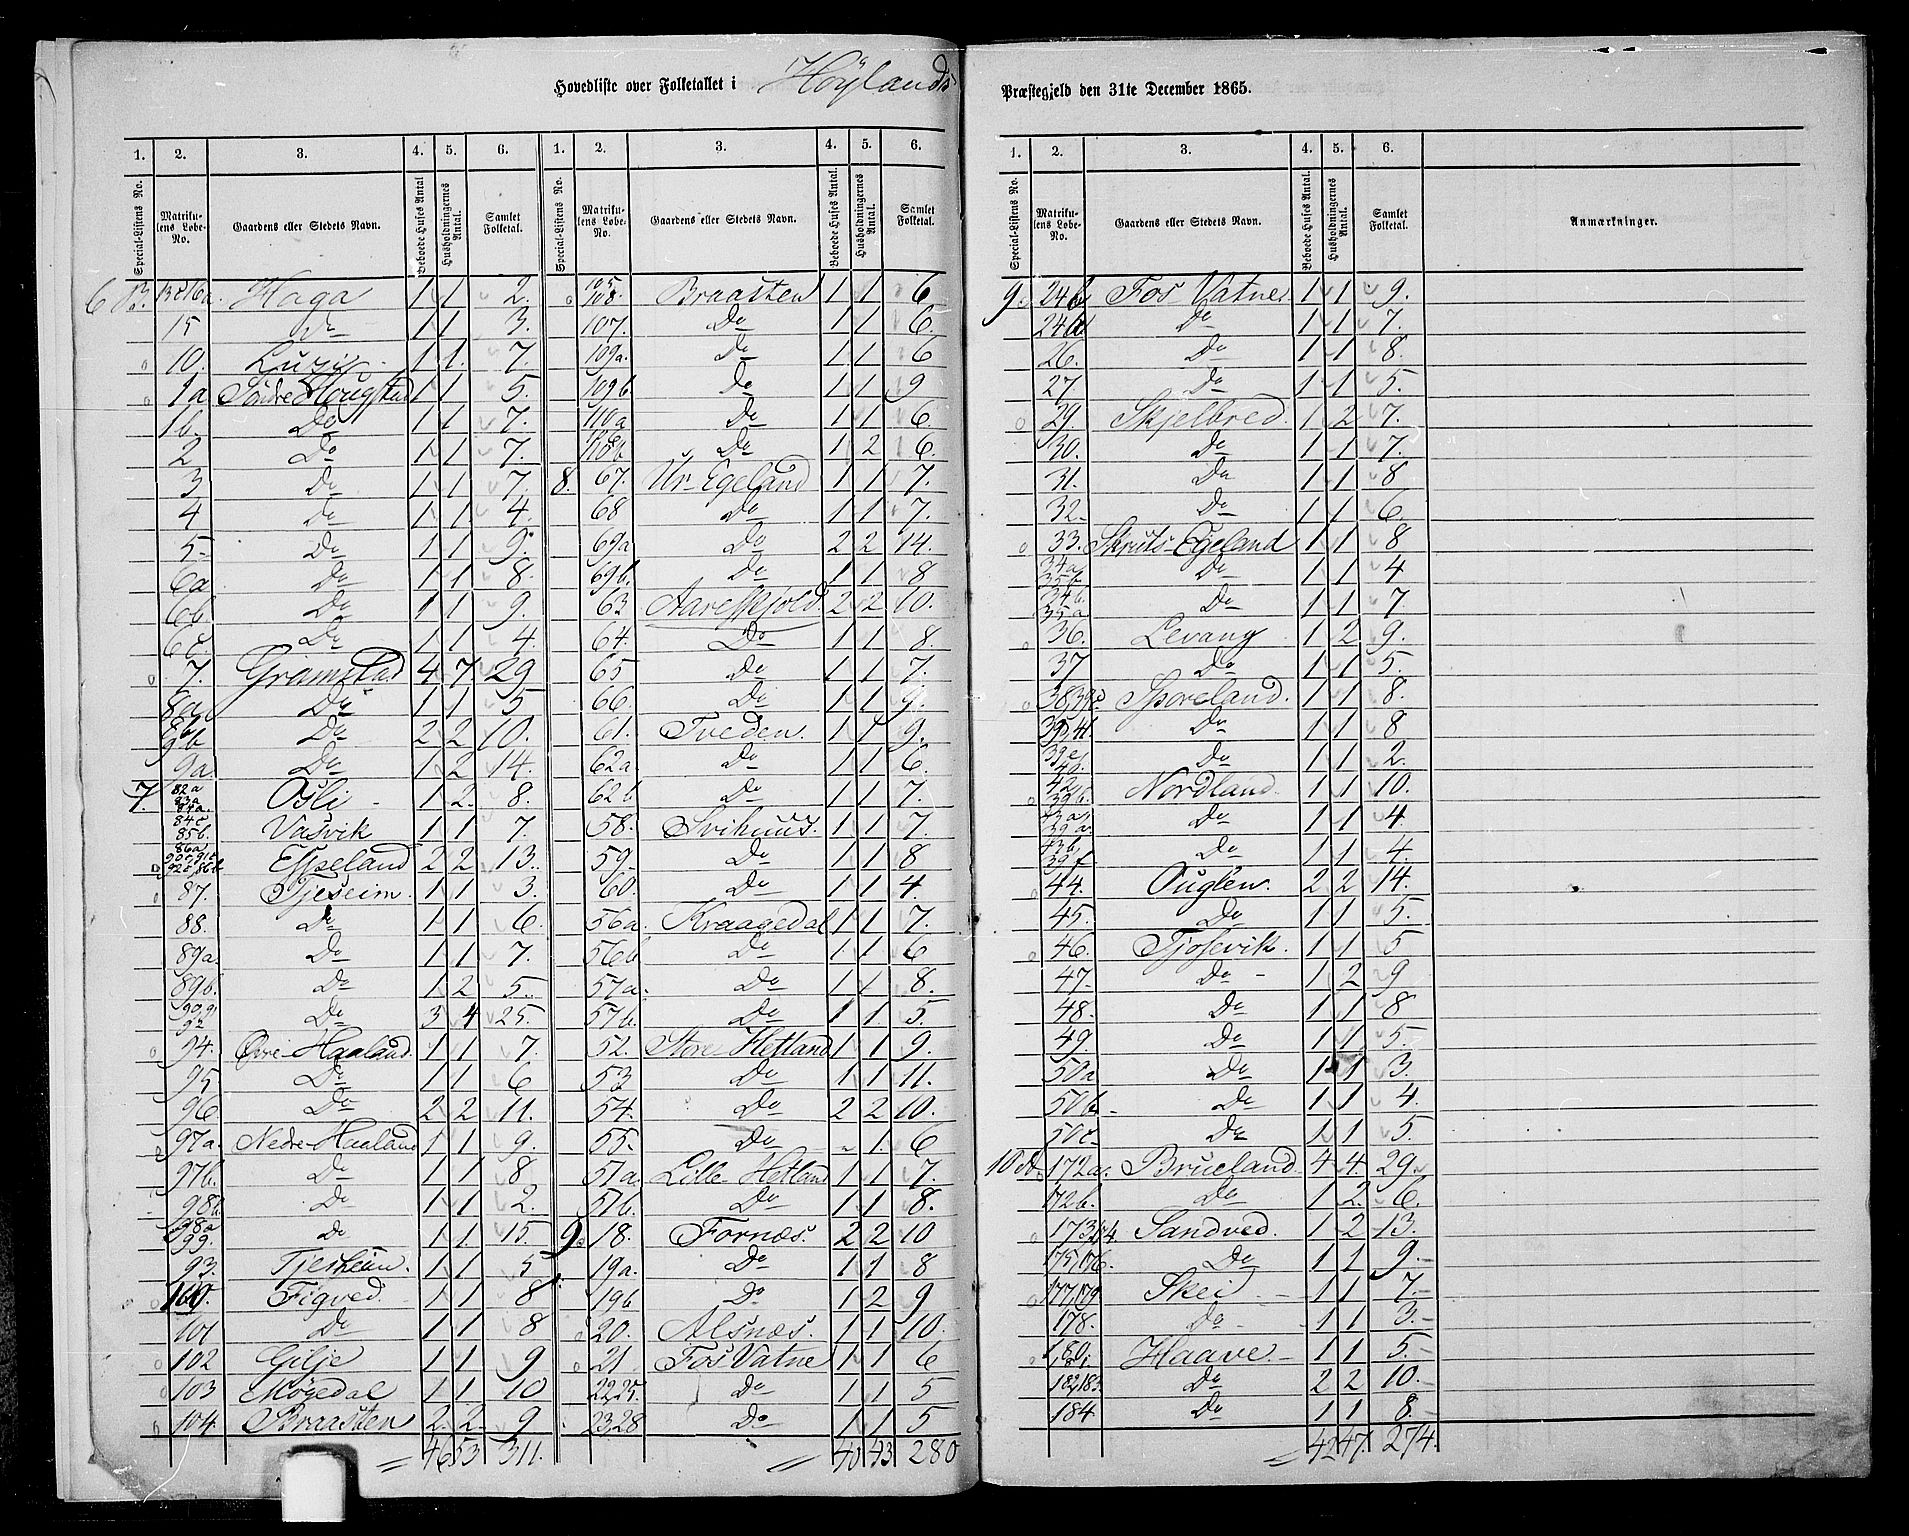 Hovedliste over Folketallet i Høylands Præstegjeld den 31te December 1865.
1. 2. 3. 4. 5. 6. 1. 2. 3. 4. 5. 6.
Special-Listens No. Matrikulens Løbe-No. Gaardens eller Stedets Navn. Beboede Huses Antal Husholdningernes Antal. Samlet Folketal. Special-Listens No. Matrikulens Løbe-No. Gaardens eller Stedets Navn. Beboede Huses Antal. Husholdningernes Antal. Samlet Folketal.
6 Haga 1 1 2. 105 108. Braasten 1 1 6
15 Do 1 1 3. 107. Do 1 1 6.
10. 1 1. 7. 109a. Do 1 1 6
1a Søndre Hougstad 1 1 5. 109b. Do 1 1 9
1b. Do 1 1 7. 110a Do 1 1 6.
2 Do 1 1 7. Do 1 2 6.
3 Do 1 1 7. 8. 67. Ur-Egeland 1 1 7.
4 Do 1 1 4. 68 Do 1 1 7.
5 Do 1 1 9. 69a Do 2 2 14.
6a Do 1 1 8. 69b. Do 1 1 8
6b. Do 1 1 9. 63 Aareskjold. 2 2 10.
6c. Do 1 1 4. 64. Do 1 1 8.
7. Gramstad 4 7 29 65 Do 1 1 7.
8a Do 1 1 5 66. Do 1 1 9.
Do 2 2 10. 61. Tveden. 1 1 9.
9a. Do 1 2 14. 62a. Do 1 1 6.
7. 82a 83a 84a. Osli 1 2. 8. 62b. Do 1 1 7.
84c 85b. Vasvik 1 1 7. 58. Svihuus. 1 1 7.
86a Espeland 2 2 13. 59. Do 1 1 8
87. Tjeseim. 1 1 3. 60. Do 1 1 4.
88. Do 1 1 6. 56a. Kraagedal 1 1 7.
89a. Do 1 1 7. 56b Do 1 1 6
89b. Do 1 2 5. 57a. Do 1 1 8.
90,91 92 Do 3 4 25. 57b. Do 1 1. 5.
94. Øvre-Haaland. 1 1 7. 52. Store-Hetland 1 1 9.
95 Do 1 1 6 53 Do 1 1 11.
96. Do 2 2 11. 54. Do 2 2 10.
97a. Nedre-Haaland 1 1 9. 55. Do " 1. 6
97b. Do 1 1 8 51a. Lille-Hetland 1 1 7.
98b. Do 1 1 2. 51b. Do 1 1 8.
98a 99. Do 1 1. 15. 9. 18. Fornæs. 2 2 10
93. Tjesheim. 1 1 5 19a. Do 1 1 8
100. Figved. 1 1 8 19b Do 1 2 9
101 Do 1 1 8 20. Alsnæs. 1 1 10.
102 Gilje 1 1 9 21 Fos Vatne 1 1 6
103 Møgedal 1 1 10 22,25. Do 1 1 5
104. Braasten 2. 2. 9 23,28 Do 1 1 5
46 53 311. 40 43 280
1. 2. 3. 4. 5. 6.
Special-Listens No. Matrikulens Løbe-No. Gaardens eller Stedets Navn. Beboede Huses Antal. Husholdningernes Antal. Samlet Folketal. Anmærkninger.
9. 24b Fos Vatne 1 1 9.
24a. Do 1 1 7.
26. Do 1 1 8.
27. Do 1 1 5.
29. Skjelbred. 1 2 7.
30. Do 1 1 7.
31. Do 1 1 8
32 Do 1 1 6.
33. Skruts-Egeland 1 1 8
34a 35b Do 1 1 4
34b. 35a Do 1 1 7.
36. Levang 1 2 9.
37 Do 1 1 5.
Sporeland. 1 1 8.
Do 1 1 8
39e 40. Do 1 1 2.
42. 39b. Nordland. 1 1 10.
43a 39a. Do 1 1 4
43b. 39f Do 1 1 4.
44. Ouglen. 2 2 14.
45. Do 1 1 5.
46. Tjosevik. 1 1 5
47. Do 1 2 9
48. Do 1 1 8
49. Do 1 1 5.
50a Do 1 1 3.
50b. Do 1 1 4.
50c. Do 1 1 5.
10 172a. Brueland. 4 4 29.
172b. Do 1 2 6.
173,174. Sandved. 1 2 13.
175,176. Do 1 1 9.
177,179 Skei. 1 1 7.
178. Do 1 1 3.
180. 181. Haave. 1 1 5.
182,183. Do 2 2 10.
184. Do 1 1 8.
42 47. 274.